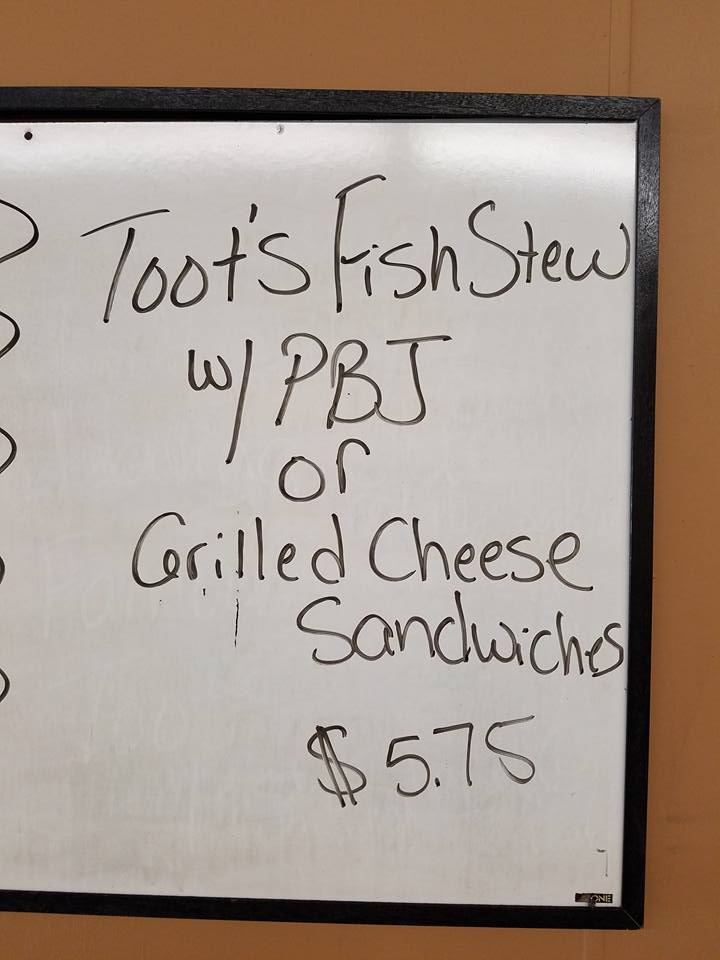 Toot's Fish Stew
w/ PBJ
or
Grilled Cheese
Sandwiches
$5.75